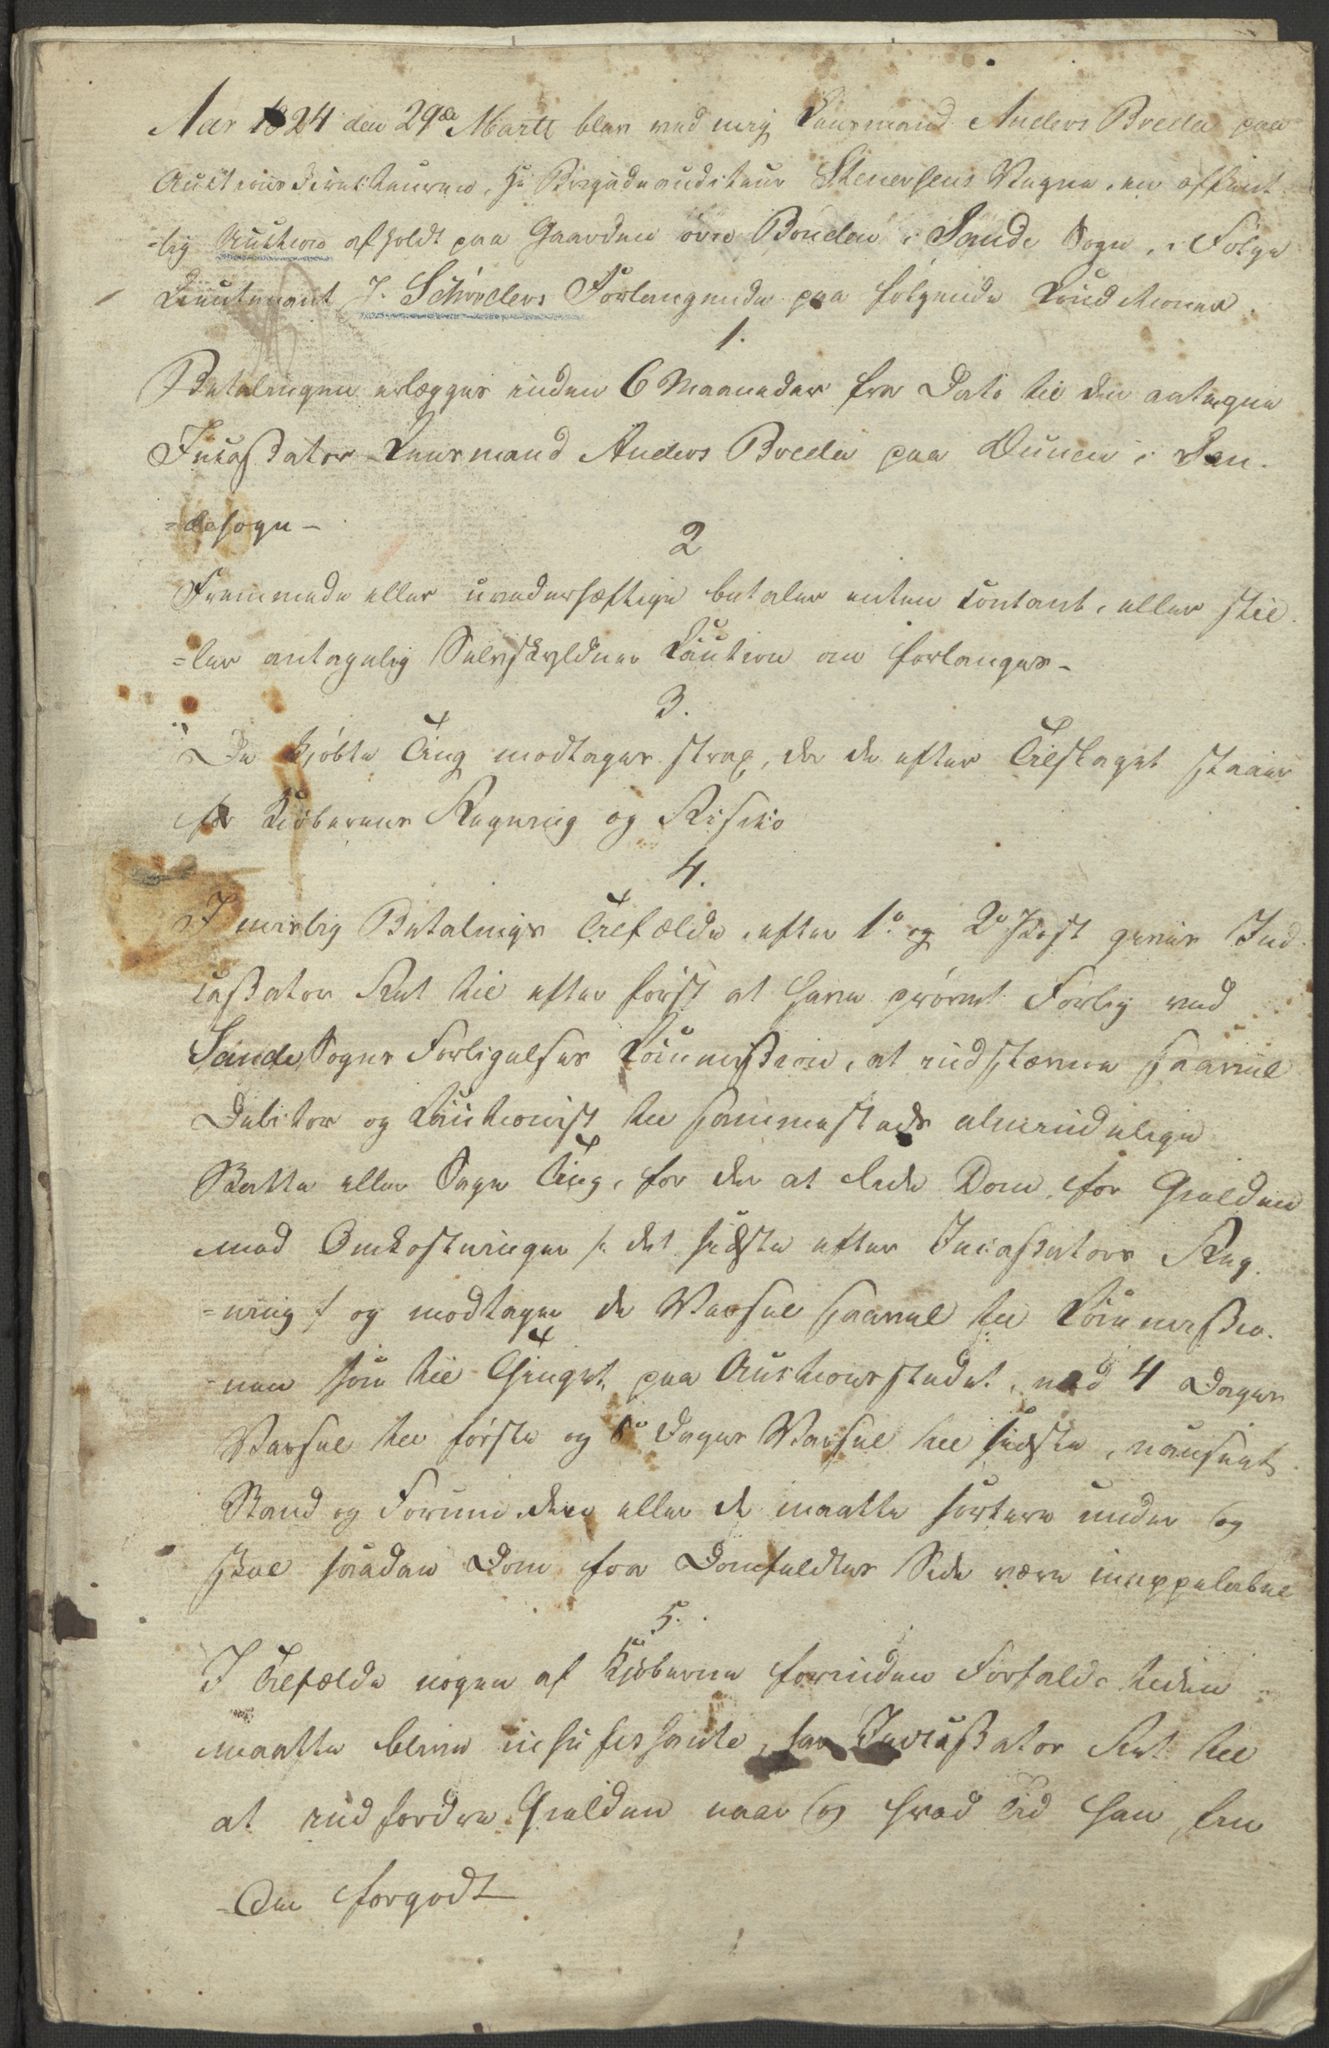 Aar 1824 den 29de Marti blev ved mig Lænsmand Anders Brecke paa
Auctions Directeuren, Hr Brigadeauditeur Stenersens Vegne, en offent
=lig Auction afholdt paa Gaarden øvre i Sande Sogn, i Følge
Lieutenant J. Schrøders Forlangende paa følgende Conditioner.
1.
Betalingen erlægges inden 6 Maaneder fra Dato til den antagne
Incassator Lænsmand Anders Brecke paa i San-
=desogn -
2
Fremmede eller uvederhæftige betaler enten contant, eller stil
=ler antagelig Selvskyldner Caution om forlanges -
3.
De kjøbte Ting modtages strax, da de efter Tilslaget staaer
for Kiøberens Regning og Risico
4.
I mislig Betalings Tilfælde, efter 1o og 2o Post gives In
cassator Ret til efter først at have prøvet Forlig ved
Sande Sogns Forligelses Commission, at indstævne saavel
Debitor og Cautionist til sammesteds almindelige
Skatte eller Sage Ting, for der at lide Dom for Gielden
med Omkostninger /: det sidste efter Incassators Reg
=ning :/ og modtages da Varsel saavel til Commissio
=nen som til Thinget, paa Auctionsstedet, med 4 Dages
Varsel til første og Dages Varsel til sidste, uanseet
Stand og Forum den eller de maatte sortere under og
skal saadan Dom fra Domfeldtes Side være inappelabel
5.
I Tilfælde nogen af Kjøberne forinden Forfaldstiden
maatte blive insufissante, har Incassator Ret til
at indfordre Gielden naar og hvad Tid han fin
=der forgodt